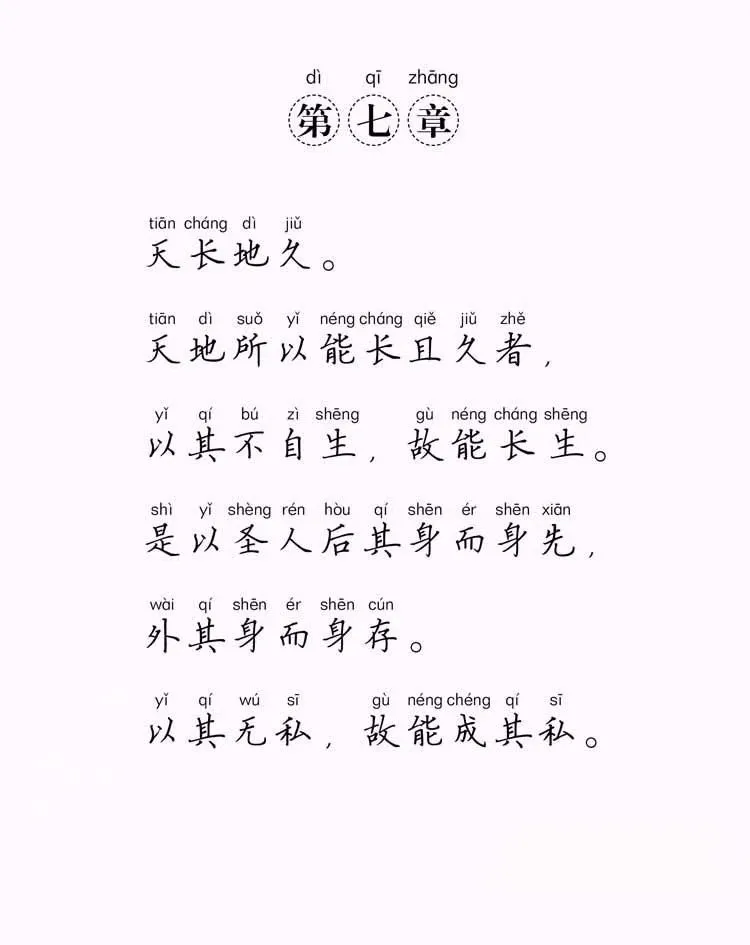 dì qī zhāng
第七章
tiān cháng dì jiǔ
天长地久。
tiān dì suǒ yǐ néng cháng qiě jiǔ zhě
天地所以能长且久者，
yǐ qí bú zì shēng gù néng cháng shēng
以其不自生，故能长生。
shì yǐ shèng rén hòu qí shēn ér shēn xiān
是以圣人后其身而身先，
wài qí shēn ér shēn cún
外其身而身存。
yǐ qí wú sī gù néng chéng qí sī
以其无私，故能成其私。